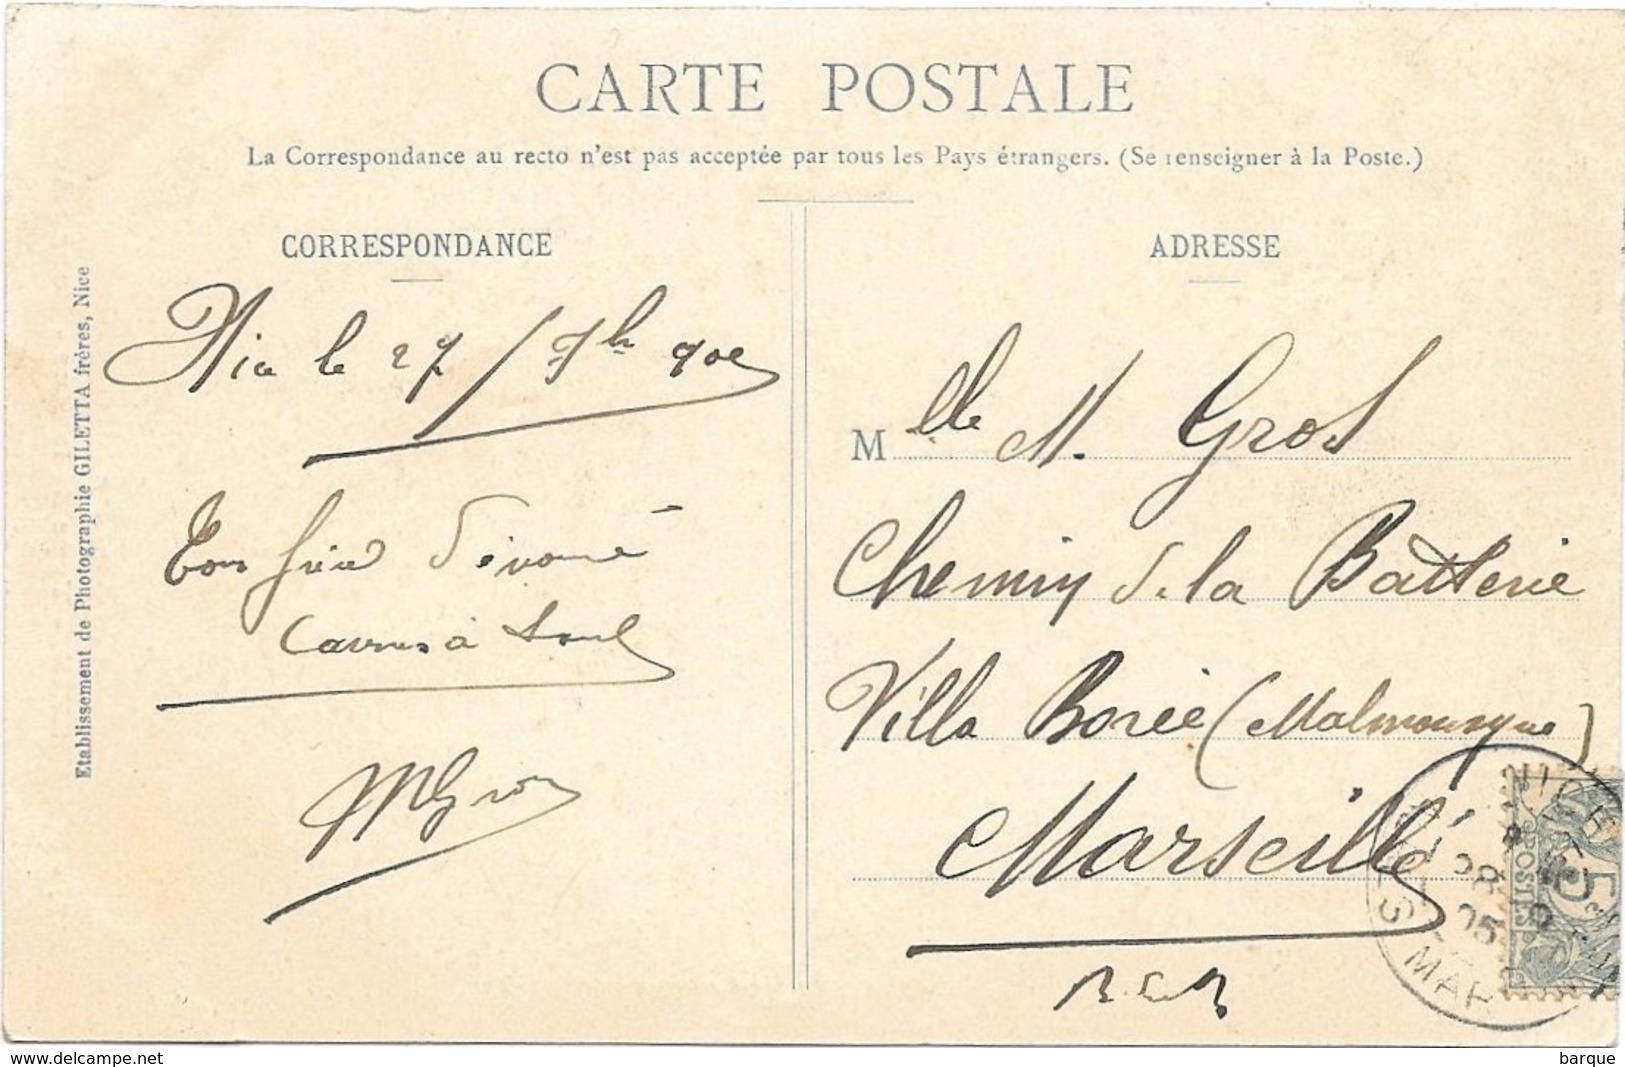 CARTE POSTALE
La Correspondance au recto n'est pas acceptée par tous les Pays étrangers. (Se renseigner à la Poste.)
CORRESPONDANCE
Nice le 27 / 7bre 905
Ton frère dévoué
à
MGros
Etablissement de Photographie GILETTA frères, Nice
ADRESSE
Mlle M. Gros
Chemin de la Batterie
Villa Borée (Malmousque)
Marseille
B. du R
NICE
28
05
MAR
POSTES
5
www.delcampe.net
barque